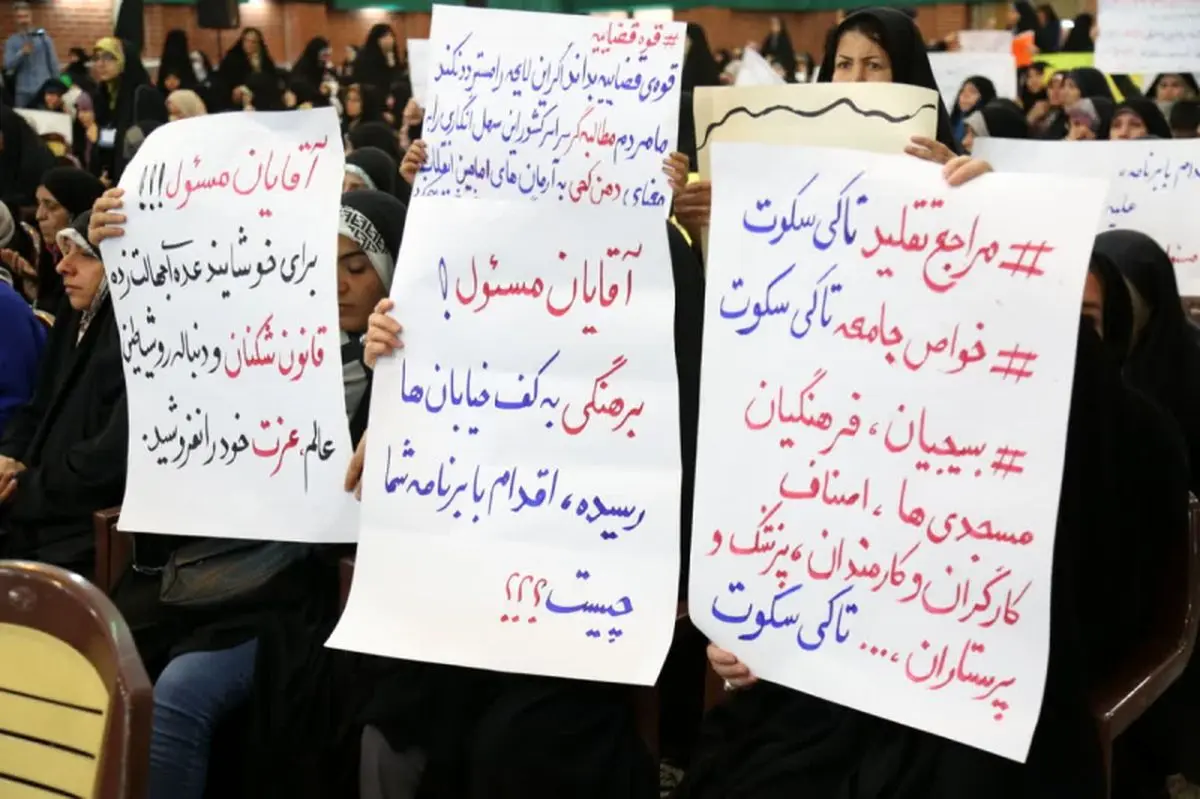 #قوه قضاییه
قوه‌ی قضاییه بداند اگر این لایحه را مسترد نکند
ما مردم مطالبه گر سراسر کشور این سهل انگاری را به
معنای دهن کجی به آرمان های امامین انقلاب
آقایان مسئول!!!
برای خوشایند عده‌ای جهالت زده
قانون شکنان و دنباله رو شیاطین
عالم، عزت خود را نفروشید.
آقایان مسئول!
برهنگی به کف خیابان ها
رسیده، اقدام با برنامه شما
چیست؟؟؟
#مراجع تقلید تا کی سکوت
#خواص جامعه تا کی سکوت
#بسیجیان، فرهنگیان
مسجدی ها، اصناف
کارگران و کارمندان، پزشک و
پرستاران، ... تا کی سکوت
اقدام با برنامه،
علیه